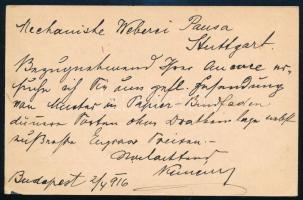 Mechanische Weberei Pausa
Stuttgart.
Bezugnehmend Ihrer Annonce er-
suche ich Sie um gefl. Zusendung
von Muster in Papier-Bindfaden
dünnere Sorten ohne Drahteinlage nebst
äußerste Engros Preisen.-
Hochachtend
Budapest 2/4 916